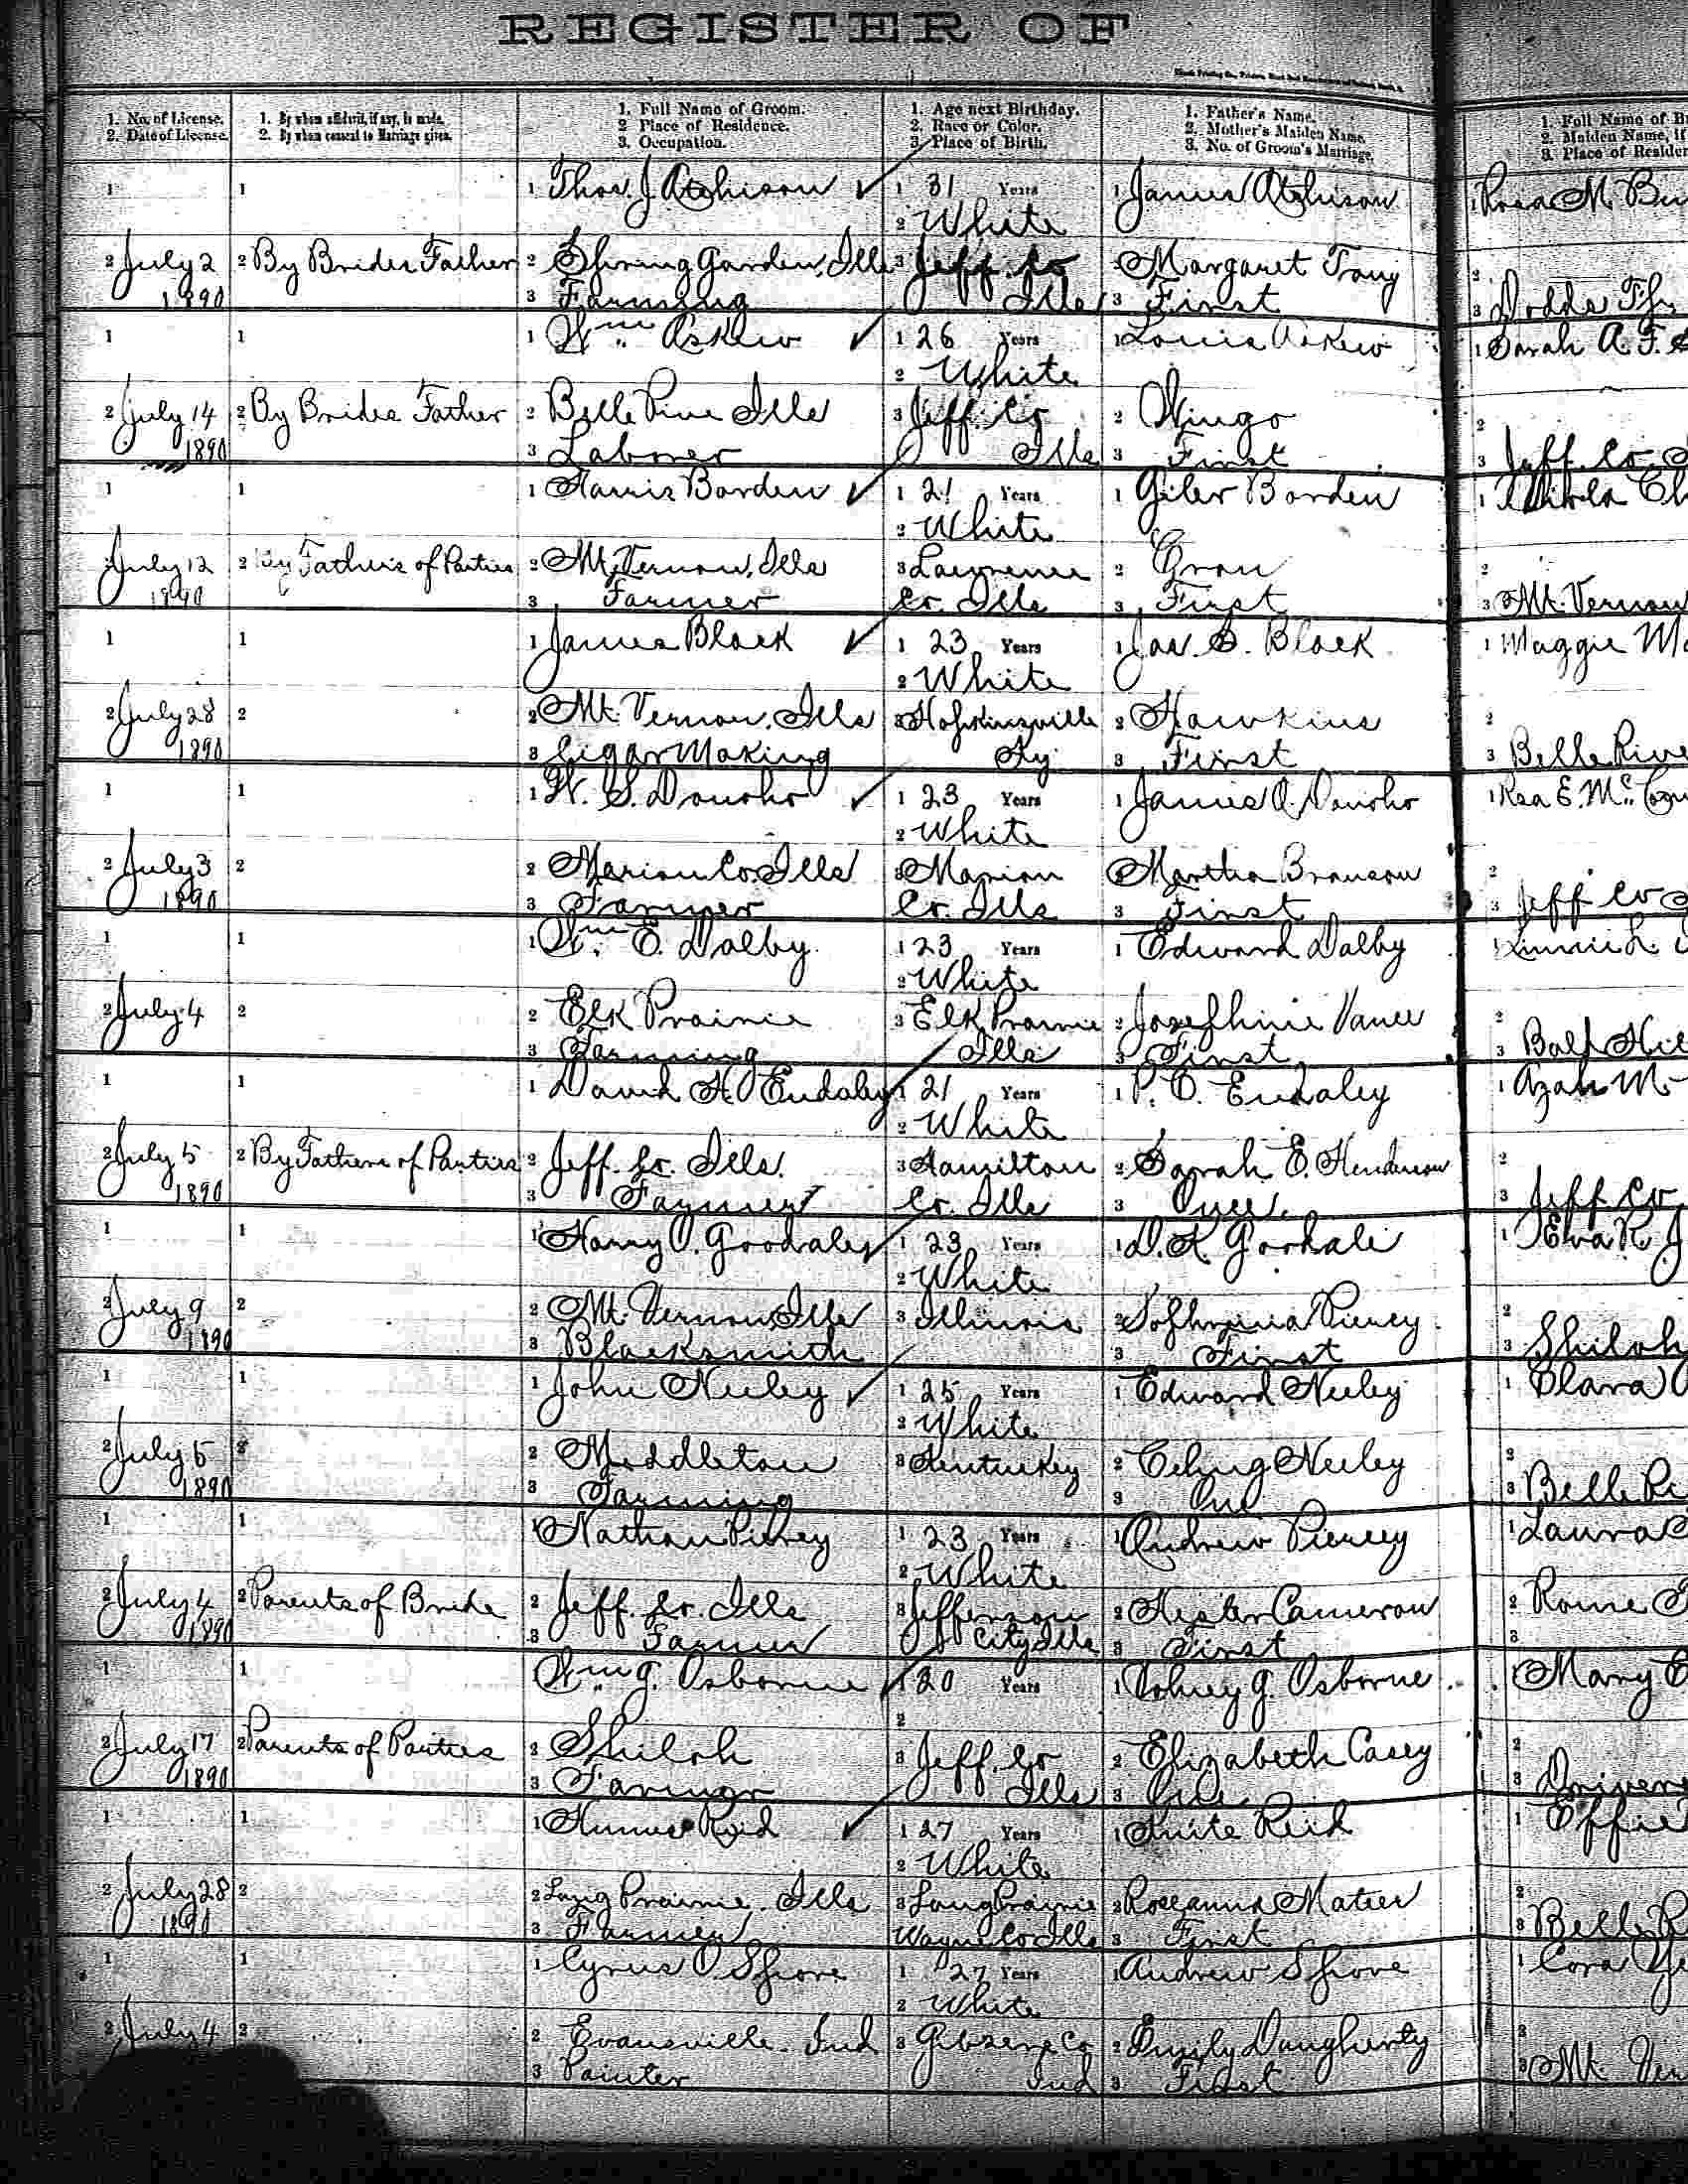 REGISTER OF
1. No. of License.
2. Date of License.
1. By whom affidavit, if any, is made.
2. By whom consent to Marriage given.
1. Full Name of Groom.
2 Place of Residence.
3. Occupation.
1. Age next Birthday.
2. Race or Color.
3. Place of Birth.
1. Father's Name.
2. Mother's Maiden Name.
3. No. of Groom's Marriage.
1. Full Name of B
2. Maiden Name, if
3. Place of Residen
1
1
1 Thos. J. Atchison
1 31 Years
1 James Atchison
1 Rosa M. Bu
2 White
2 July 2
2 By Brides Father
2 Spring Garden, Ills
3 Jeff. Co
2 Margaret
2
1890
3 Farming
Ills
3 First
3 Dodds
1
1
1 Wm. Askew
1 26 Years
1 Louis Askew
1 Sarah A. F.
2 White
2 July 14
2 By Brides Father
2 Belle Rive Ills
3 Jeff. Co
2 Wingo
2
1890
3 Laborer
Ills
3 First
3 Jeff. Co.
1
1
1 Harris Borden
1 21 Years
1 Giler Borden
1
2 White
2 July 12
2 By Fathers of Parties
2 Mt. Vernon, Ills
3 Lawrence
2
2
1890
3 Farmer
Co. Ills
3 First
3 Mt. Vernon
1
1
1 James Black
1 23 Years
1 Jas. S. Black
1 Maggie M
2 White
2 July 28
2
2 Mt. Vernon, Ills
3 Hopkinsville
2 Hawkins
2
1890
3 Cigar Making
Ky
3 First
3 Belle Rive
1
1
1 W. S. Donoho
1 23 Years
1 James A. Donoho
1 Rsa E. Mc
2 White
2 July 3
2
2 Marion Co Ills
3 Marion
2 Martha Branson
2
1890
3 Farmer
Co. Ills
3 First
3 Jeff Co
1
1
1 Wm. E. Dalby
1 23 Years
1 Edward Dalby
1
2 White
2 July 4
2
2 Elk Prairie
3 Elk Prairie
2 Josephine Vance
2
3 Farming
Ills
3 First
3 Bald Hil
1
1
1 David H. Endaley
1 21 Years
1 P. O. Endaley
1 Azah M
2 White
2 July 5
2 By Fathers of Parties
2 Jeff. Co. Ills.
3 Hamilton
2 Sarah E. Henderson
2
1890
3 Farmer
Co. Ills
3
3 Jeff Co
1
1
1 Harry O. Goodaley
1 23 Years
1 D. K. Goodale
1 Eva R. J
2 White
2 July 9
2
2 Mt. Vernon, Ills
3 Illinois
2 Sophronia Piercy
2
1890
3 Blacksmith
3 First
3 Shiloh
1
1
1 John Neeley
1 25 Years
1 Edward Neeley
1 Clara
2 White
2 July 5
2
2 Middleton
3 Kentucky
2 Neeley
2
1890
3 Farming
3 One
3 Belle Ri
1
1
1 Nathan Piercy
1 23 Years
1 Andrew Piercey
1 Laura
2 White
2 July 4
2 Parents of Bride
2 Jeff. Co. Ills
3 Jefferson
2 Hester Cameron
2 Rome
1890
3 Farmer
City Ills
3 First
3
1
1
1 Wm G. Osborne
1 20 Years
1 Volney G. Osborne
1 Mary E
2
2 July 17
2 Parents of Parties
2 Shiloh
3 Jeff. Co
2 Elizabeth Casey
2
1890
3 Farmer
Ills
3 One
3
1
1
1 Reid
1 27 Years
1 Reid
1 Effie
2 White
2 July 28
2
2 Long Prairie. Ills
3 Long Prairie
2 Roseanna
2
1890
3 Farmer
Wayne Co Ills
3 First
3 Belle R
1
1
1 Cyrus O. Shore
1 27 Years
1 Andrew Shore
1 Cora
2 White
2 July 4
2
2 Evansville. Ind
3 Gibson Co
2 Emily Daugherty
2
3 Painter
Ind
3 First
3 Mt. Ver